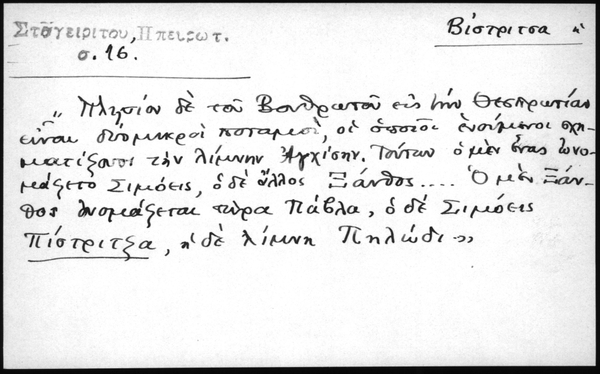 Σταγειρίτου, Ηπειρωτ.
σ. 16.
Βίστριτσα ἡ
„ Πλησίον δὲ τοῦ Βουθρωτοῦ εἰς τὴν Θεσπρωτίαν
εἶναι δύο μικροὶ ποταμοὶ, οἱ ὁποῖοι ἑνούμενοι σχη-
ματίζουσι τὴν λίμνην Ἀγχίσην. Τούτων ὁ μὲν ἕνας ὠνο-
μάζετο Σιμόεις, ὁ δὲ ἄλλος Ξάνθος.... Ὁ μὲν Ξάν-
θος ὀνομάζεται τώρα Πάβλα, ὁ δὲ Σιμόεις
Πίστριτζα, ἡ δὲ λίμνη Πηλώδι»